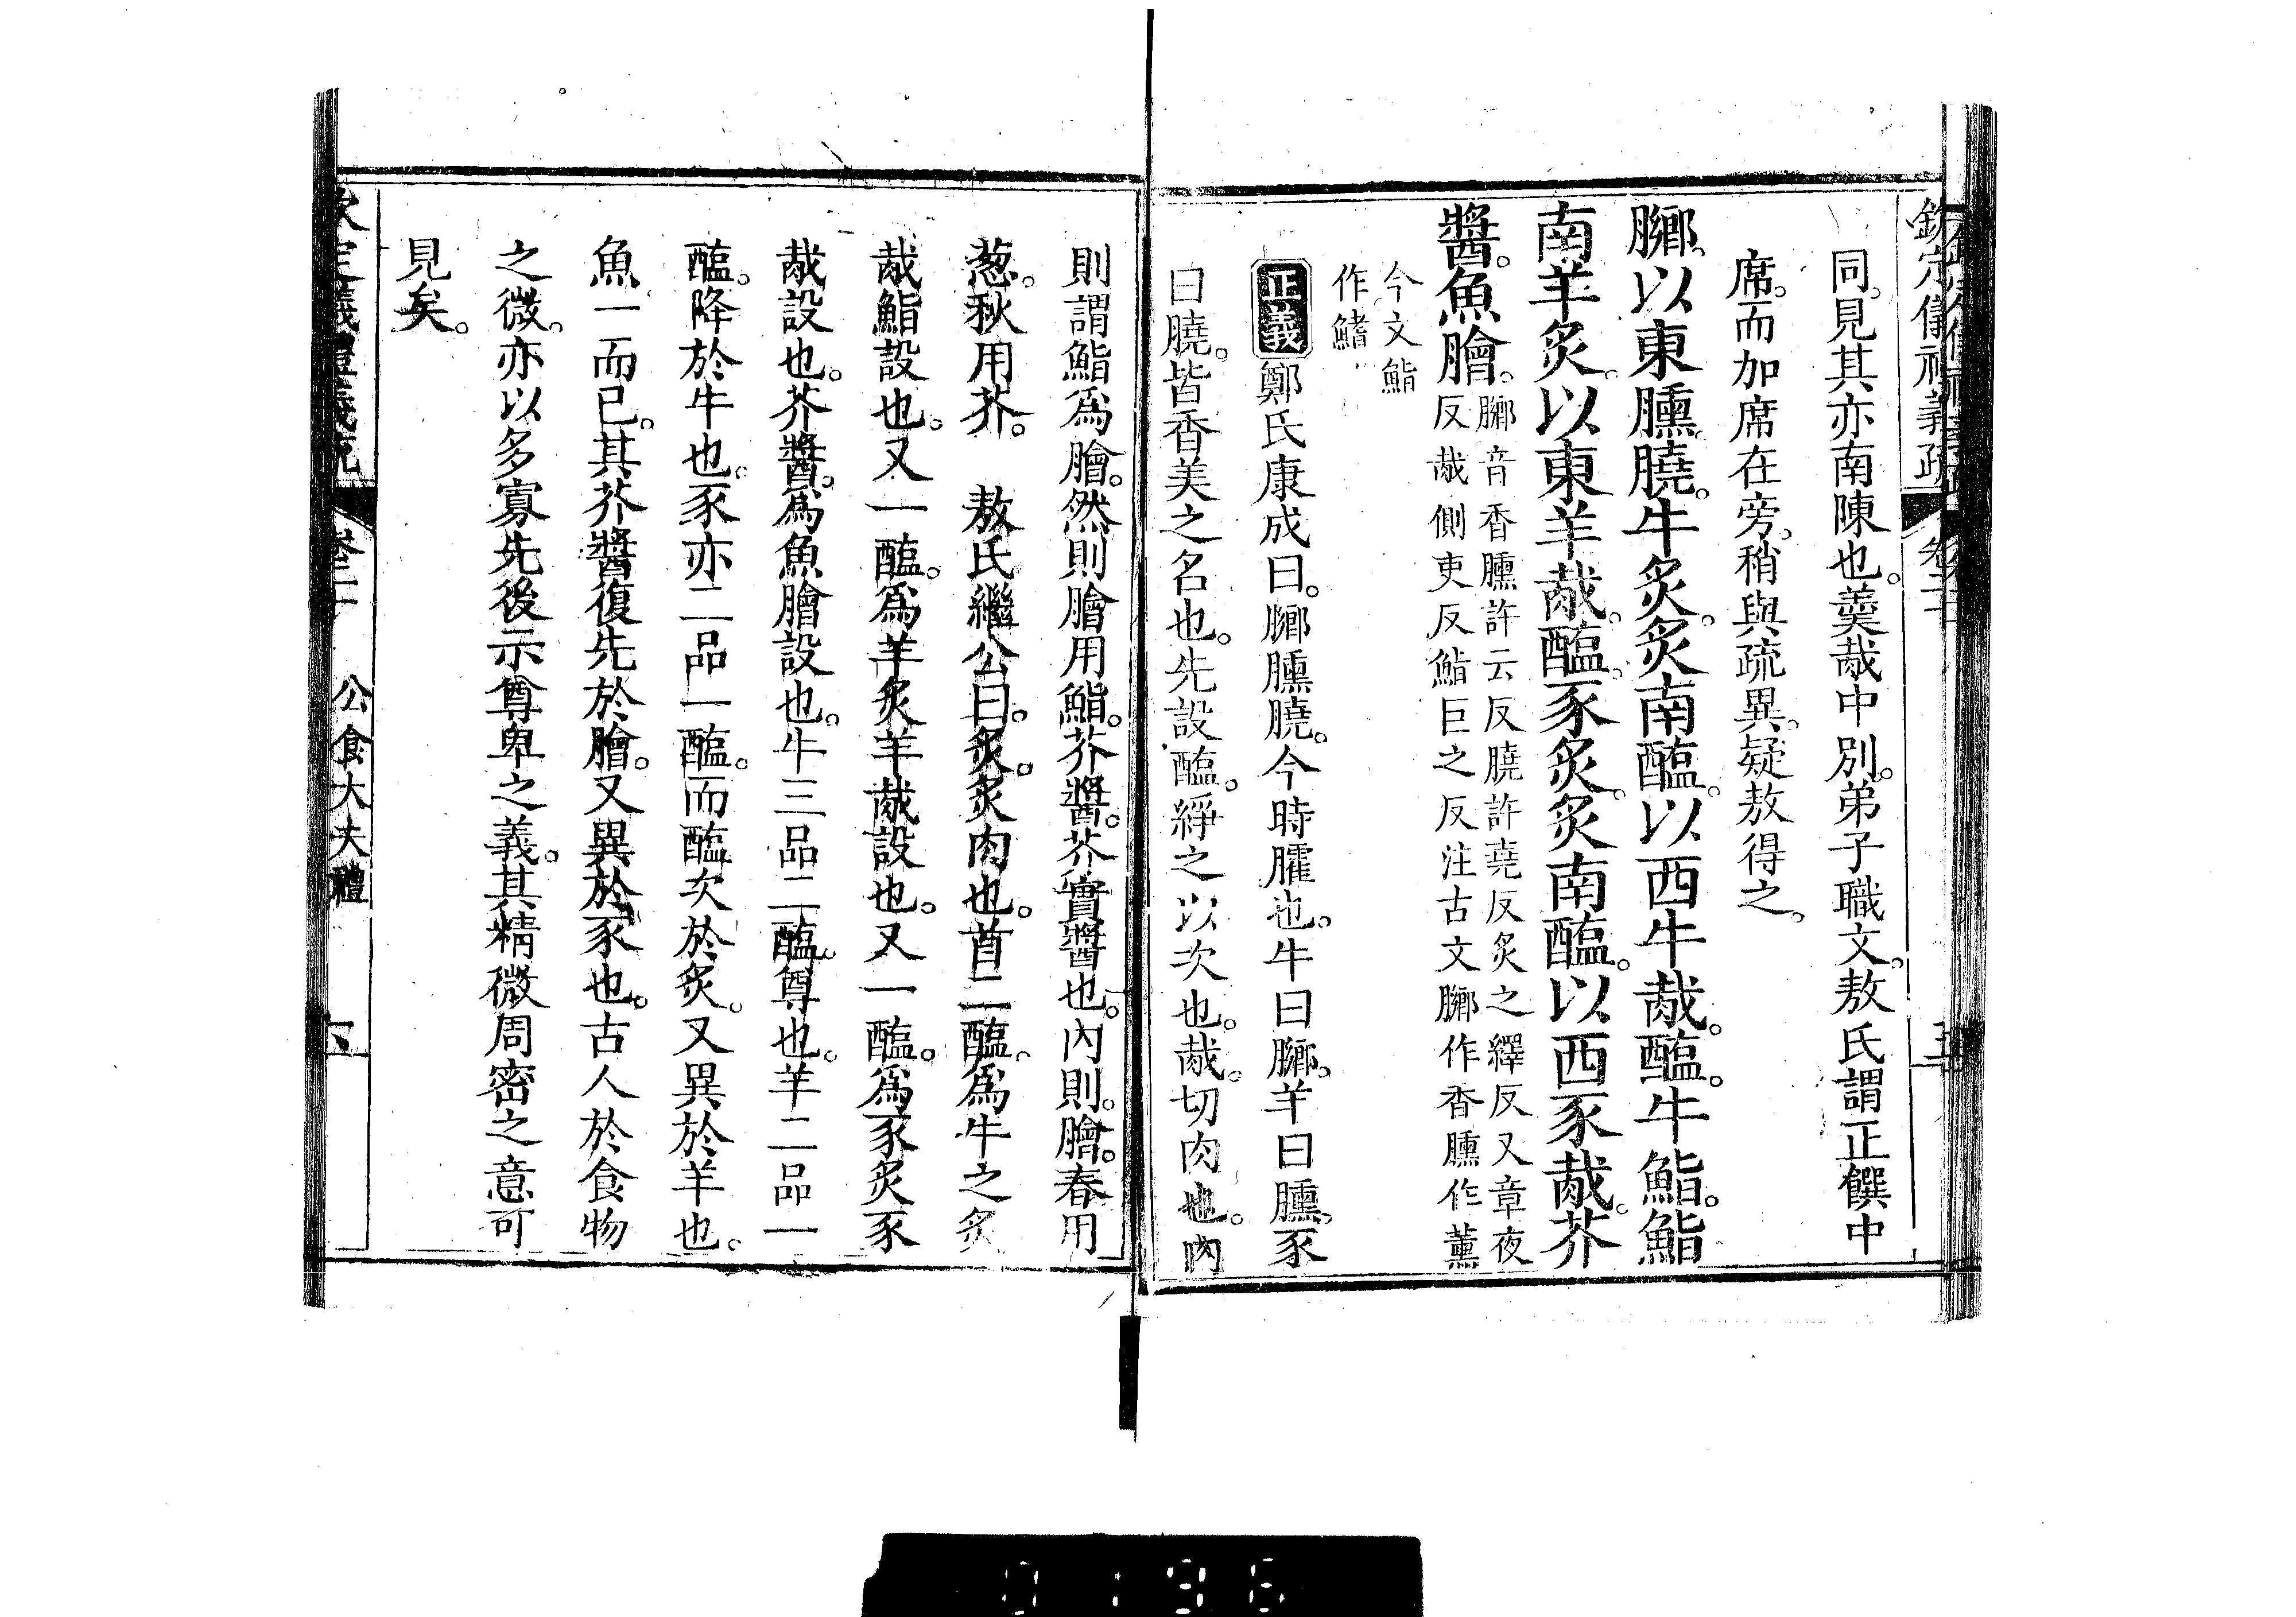 欽定儀禮義疏 卷二十
同。見其亦南陳也。羹胾中別。弟子職文。敖氏謂正饌中
席。而加席在旁。稍與疏異。疑敖得之。
膷。以東臐膮。牛炙。炙南醢。以西牛胾。醢。牛鮨。鮨
南羊炙。以東羊胾。醢。豕炙。炙南醢。以西豕胾。芥
醬。魚膾。
膷音香臐許云反膮許堯反炙之繹反又章夜
反胾側吏反鮨巨之反注古文膷作香臐作薰
今文鮨
作鰭
正義鄭氏康成曰。膷臐膮。今時臛也。牛曰膷。羊曰臐。豕
曰膮。皆香美之名也。先設醢。綪之以次也。胾。切肉也。內
則謂鮨爲膾。然則膾用鮨。芥醬。芥實醬也。內則。膾。春用
葱。秋用芥。 敖氏繼公曰。炙。炙肉也。首二醢。爲牛之炙
胾鮨設也。又一醢。爲羊炙羊胾設也。又一醢。爲豕炙豕
胾設也。芥醬。爲魚膾設也。牛三品二醢。尊也。羊二品一
醢。降於牛也。豕亦二品一醢。而醢次於炙。又異於羊也。
魚一而已。其芥醬復先於膾。又異於豕也。古人於食物
之微。亦以多寡先後示尊卑之義。其精微周密之意可
見矣。
欽定儀禮義疏 卷二十 公食大夫禮
0196